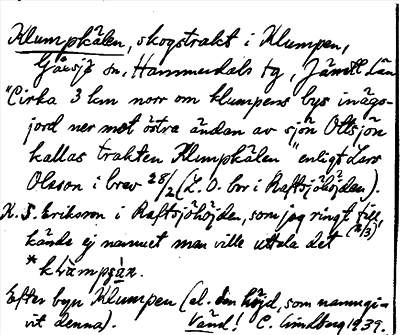 Klumpkälen, skogstrakt i Klumpen,
Gåxsjö sn, Hammerdals tg, Jämtl. Län
"Cirka 3 km norr om Klumpens bys inägo-
jord ner mot östra ändan av sjön Ottsjön
kallas trakten Klumpkälen" enligt Lars
Olsson i brev 28/2 (L. O. bor i Raftsjöhöjden).
K. S. Eriksson i Raftsjöhöjden, som jag ringt till, (2/3)
kände ej namnet man ville uttala det
Efter byn Klumpen (el. den höjd, som namngi-
vit denna). Vänd! C. Lindberg 1939.